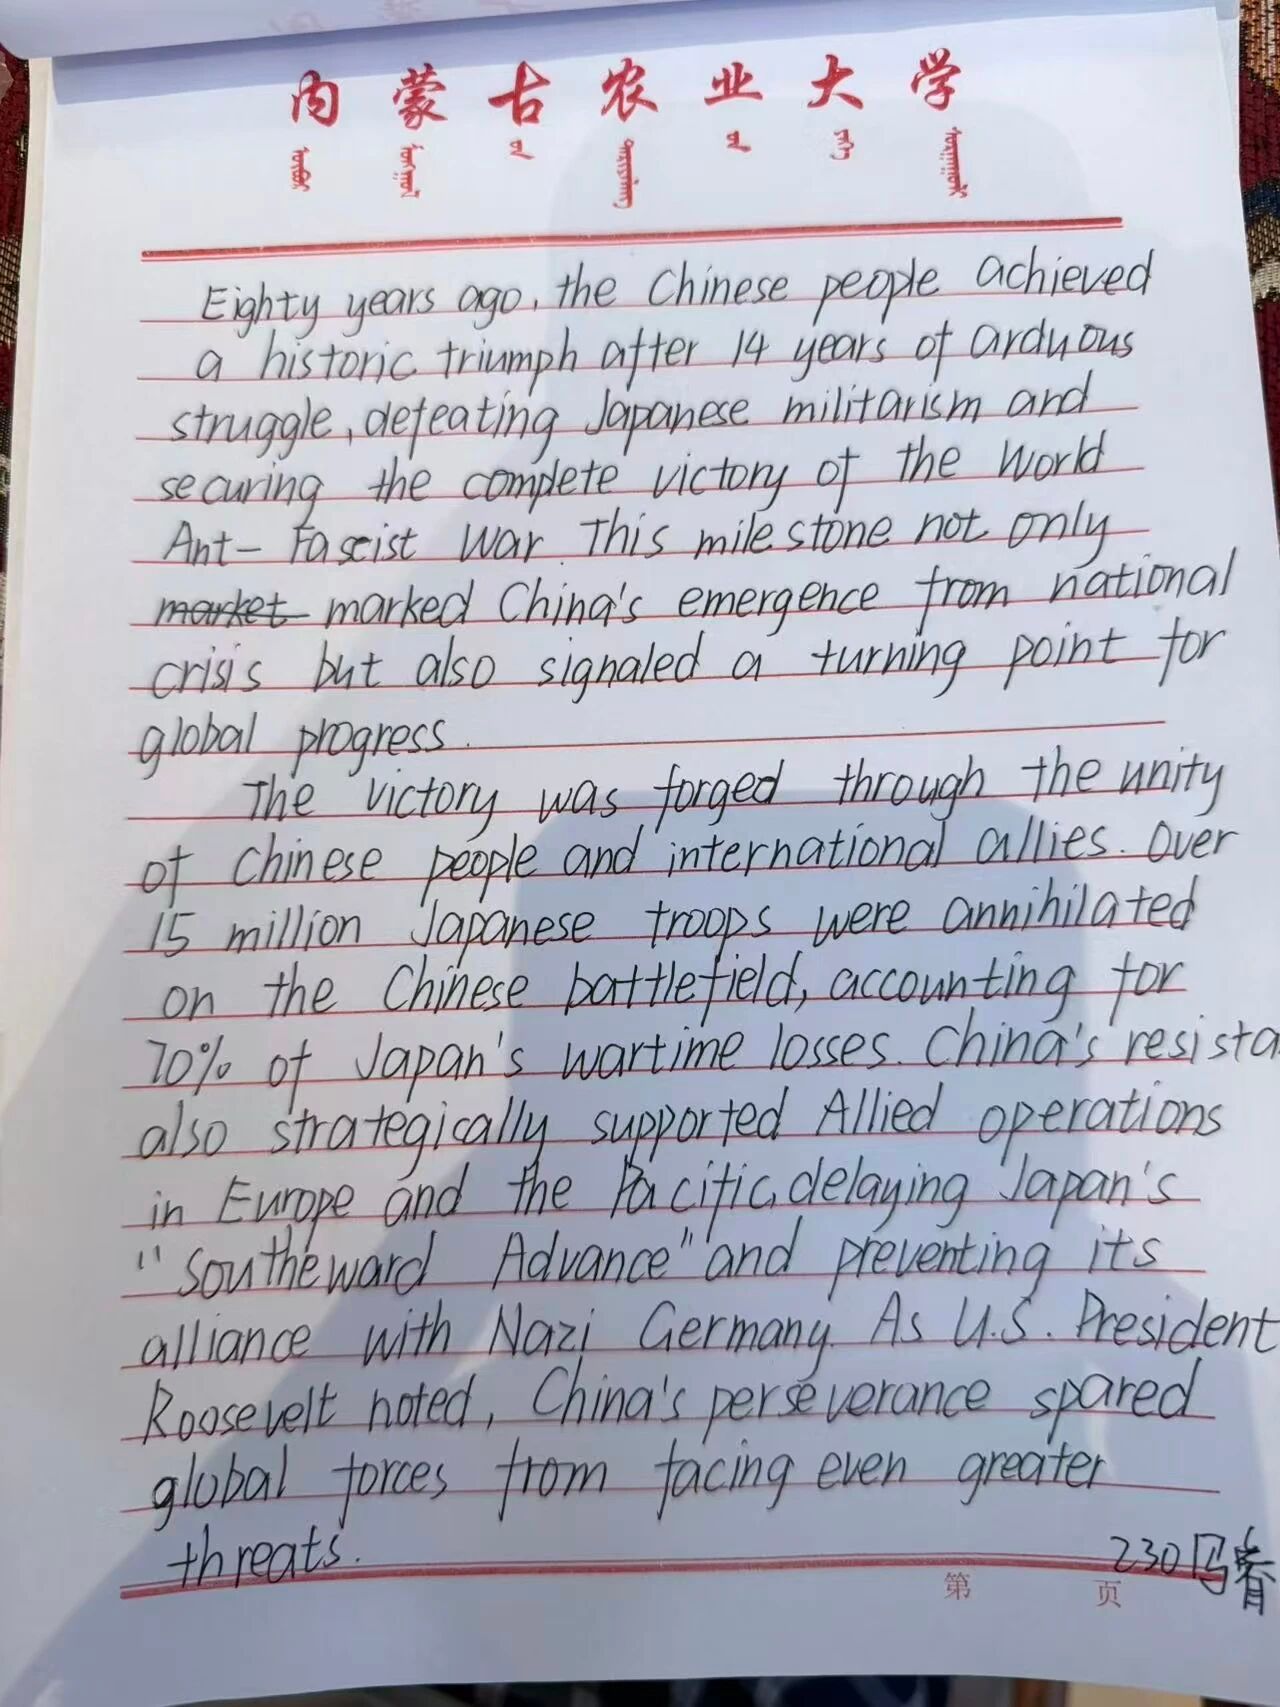 内蒙古农业大学
Eighty years ago, the Chinese people achieved
a historic triumph after 14 years of arduous
struggle, defeating Japanese militarism and
securing the complete victory of the World
Ant- Fascist War. This milestone not only
market marked China's emergence from national
crisis but also signaled a turning point for
global progress.
The victory was forged through the unity
of Chinese people and international allies. Over
15 million Japanese troops were annihilated
on the Chinese battlefield, accounting for
70% of Japan's wartime losses. China's resista
also strategically supported Allied operations
in Europe and the Pacific, delaying Japan's
"Southeward Advance" and preventing its
alliance with Nazi Germany. As U.S. President
Roosevelt noted, China's perseverance spared
global forces from facing even greater
threats.
230 冯睿
第 页